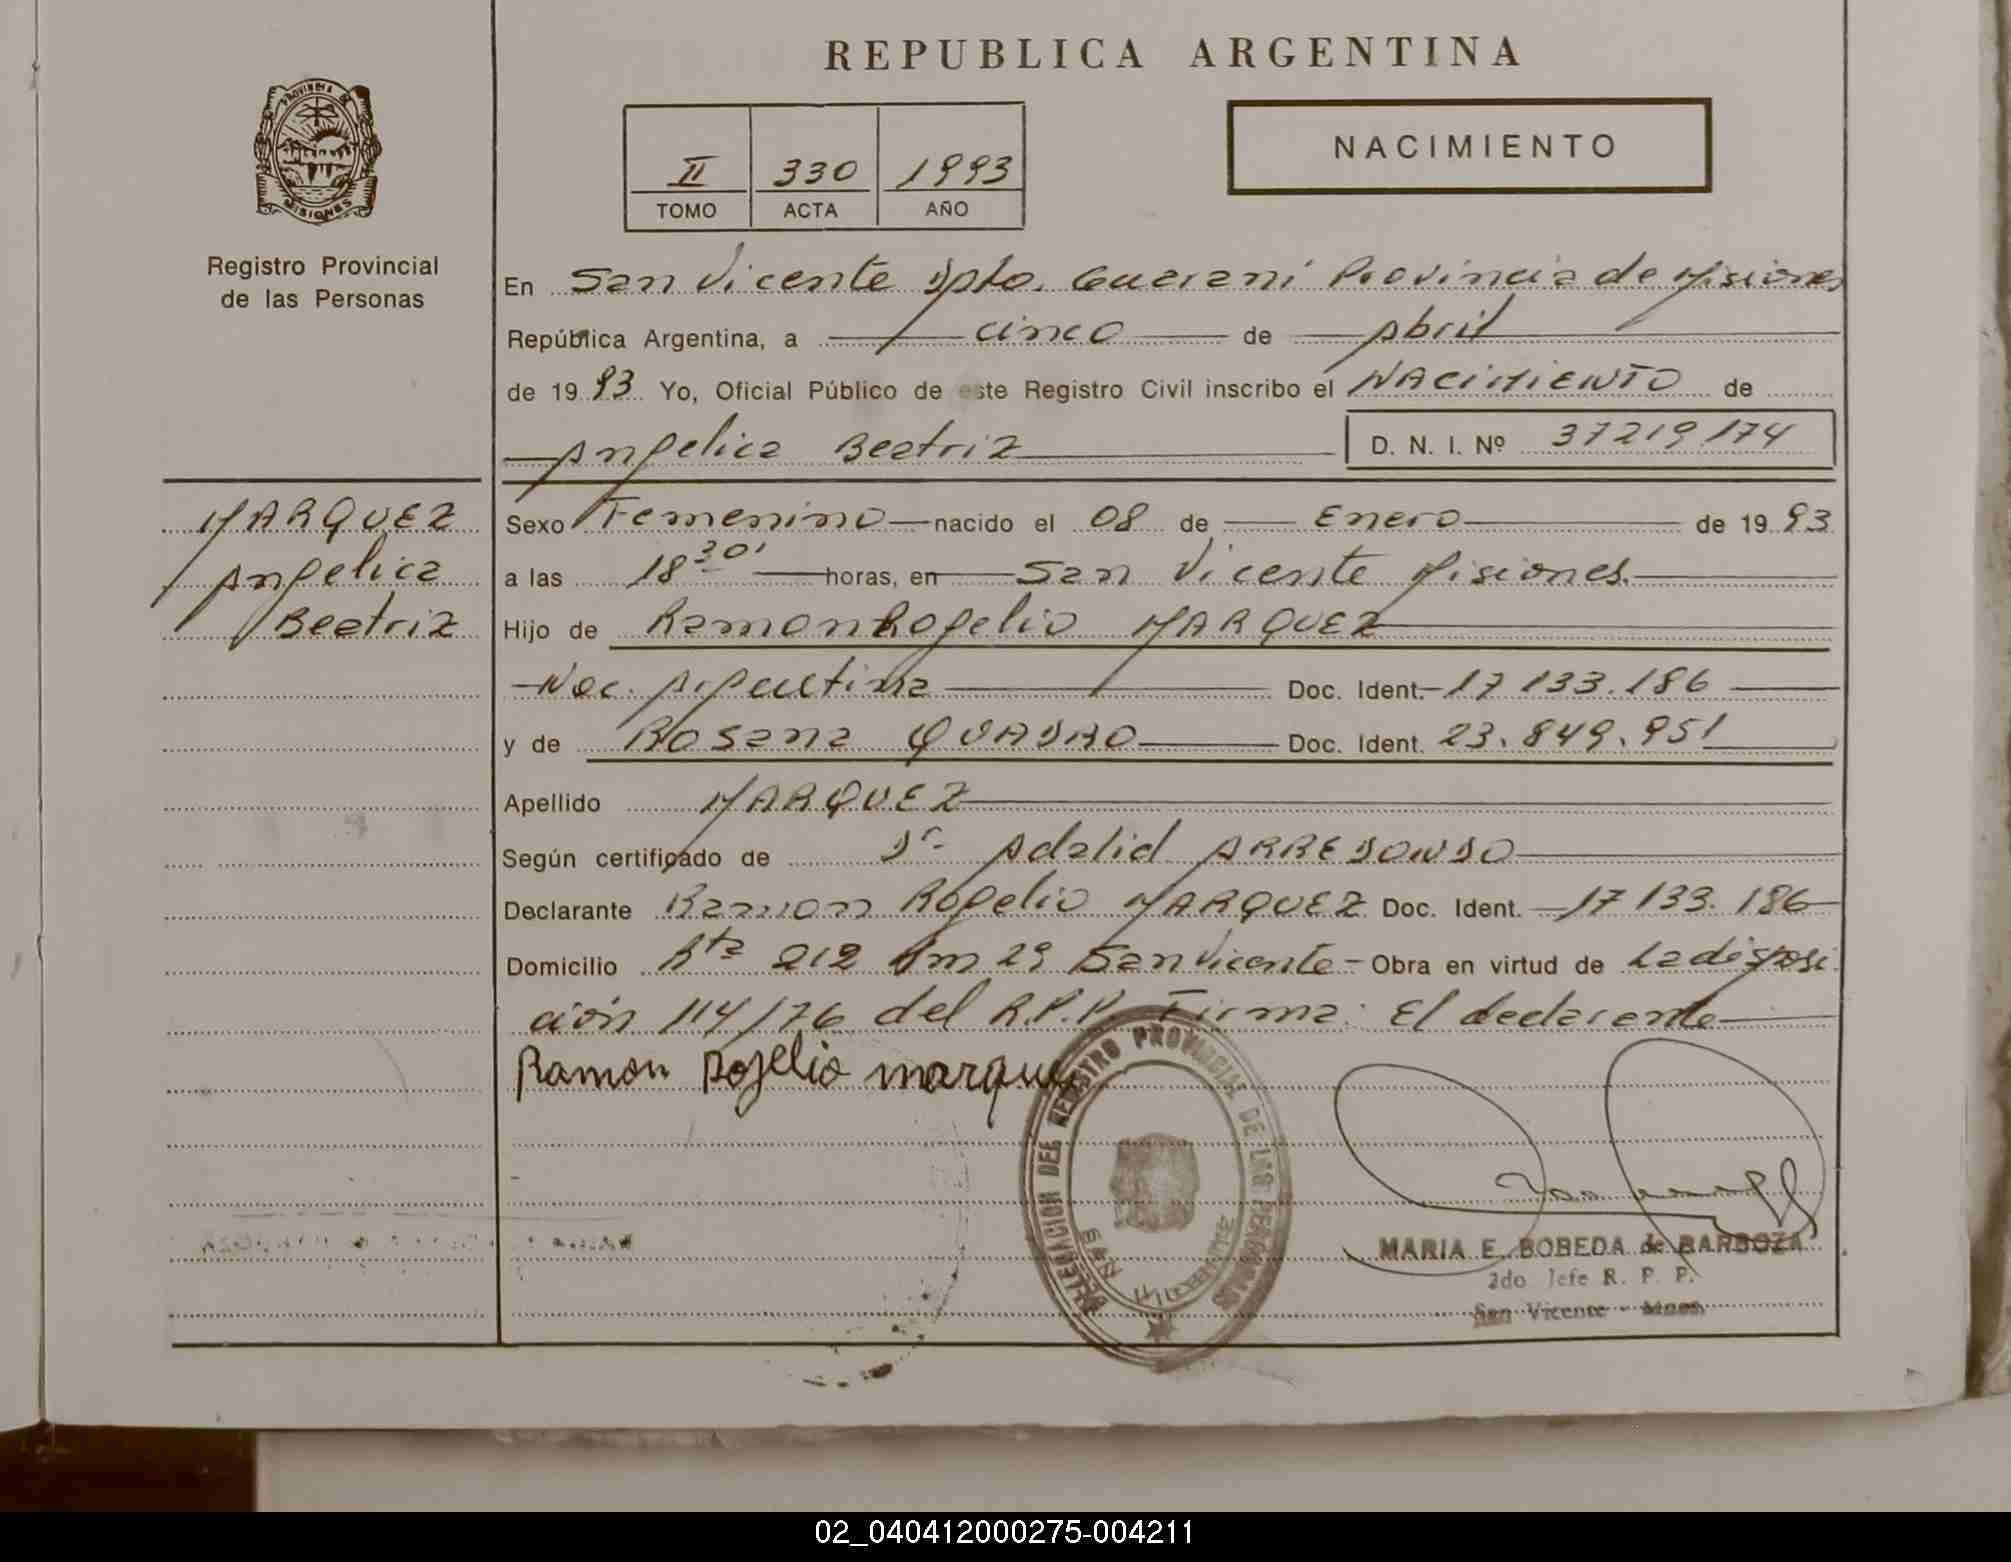 REPUBLICA ARGENTINA
PROVINCIA DE
MISIONES
Registro Provincial
de las Personas
II 330 1993
TOMO ACTA AÑO
NACIMIENTO
En San Vicente Dpto. Guarani Provincia de Misiones
República Argentina, a cinco de Abril
de 1993 Yo, Oficial Público de este Registro Civil inscribo el NACIMIENTO de
Angelica Beatriz D. N. I. Nº 37219.174
MARQUEZ
Angelica
Beatriz
Sexo Femenino nacido el 08 de Enero de 1993
a las 18 30' horas, en San Vicente Misiones.
Hijo de Ramon Rogelio MARQUEZ
Nac. Argentina Doc. Ident. 17 133.186
y de Rosana QUADRO Doc. Ident. 23.849.951
Apellido MARQUEZ
Según certificado de Dr. Adalid ARREDONDO
Declarante Ramon Rogelio MARQUEZ Doc. Ident. 17 133.186
Domicilio Rta 212 Km 29 San Vicente - Obra en virtud de La disposi
ción 114/76 del R.P.P. Firma: El declarante
Ramon Rojelio marquez
DELEGACION DEL REGISTRO PROVINCIAL DE LAS PERSONAS
SAN VICENTE
MARIA E. BOBEDA de BARBOZA
2do Jefe R. P. P.
San Vicente - Mnes.
02_040412000275-004211